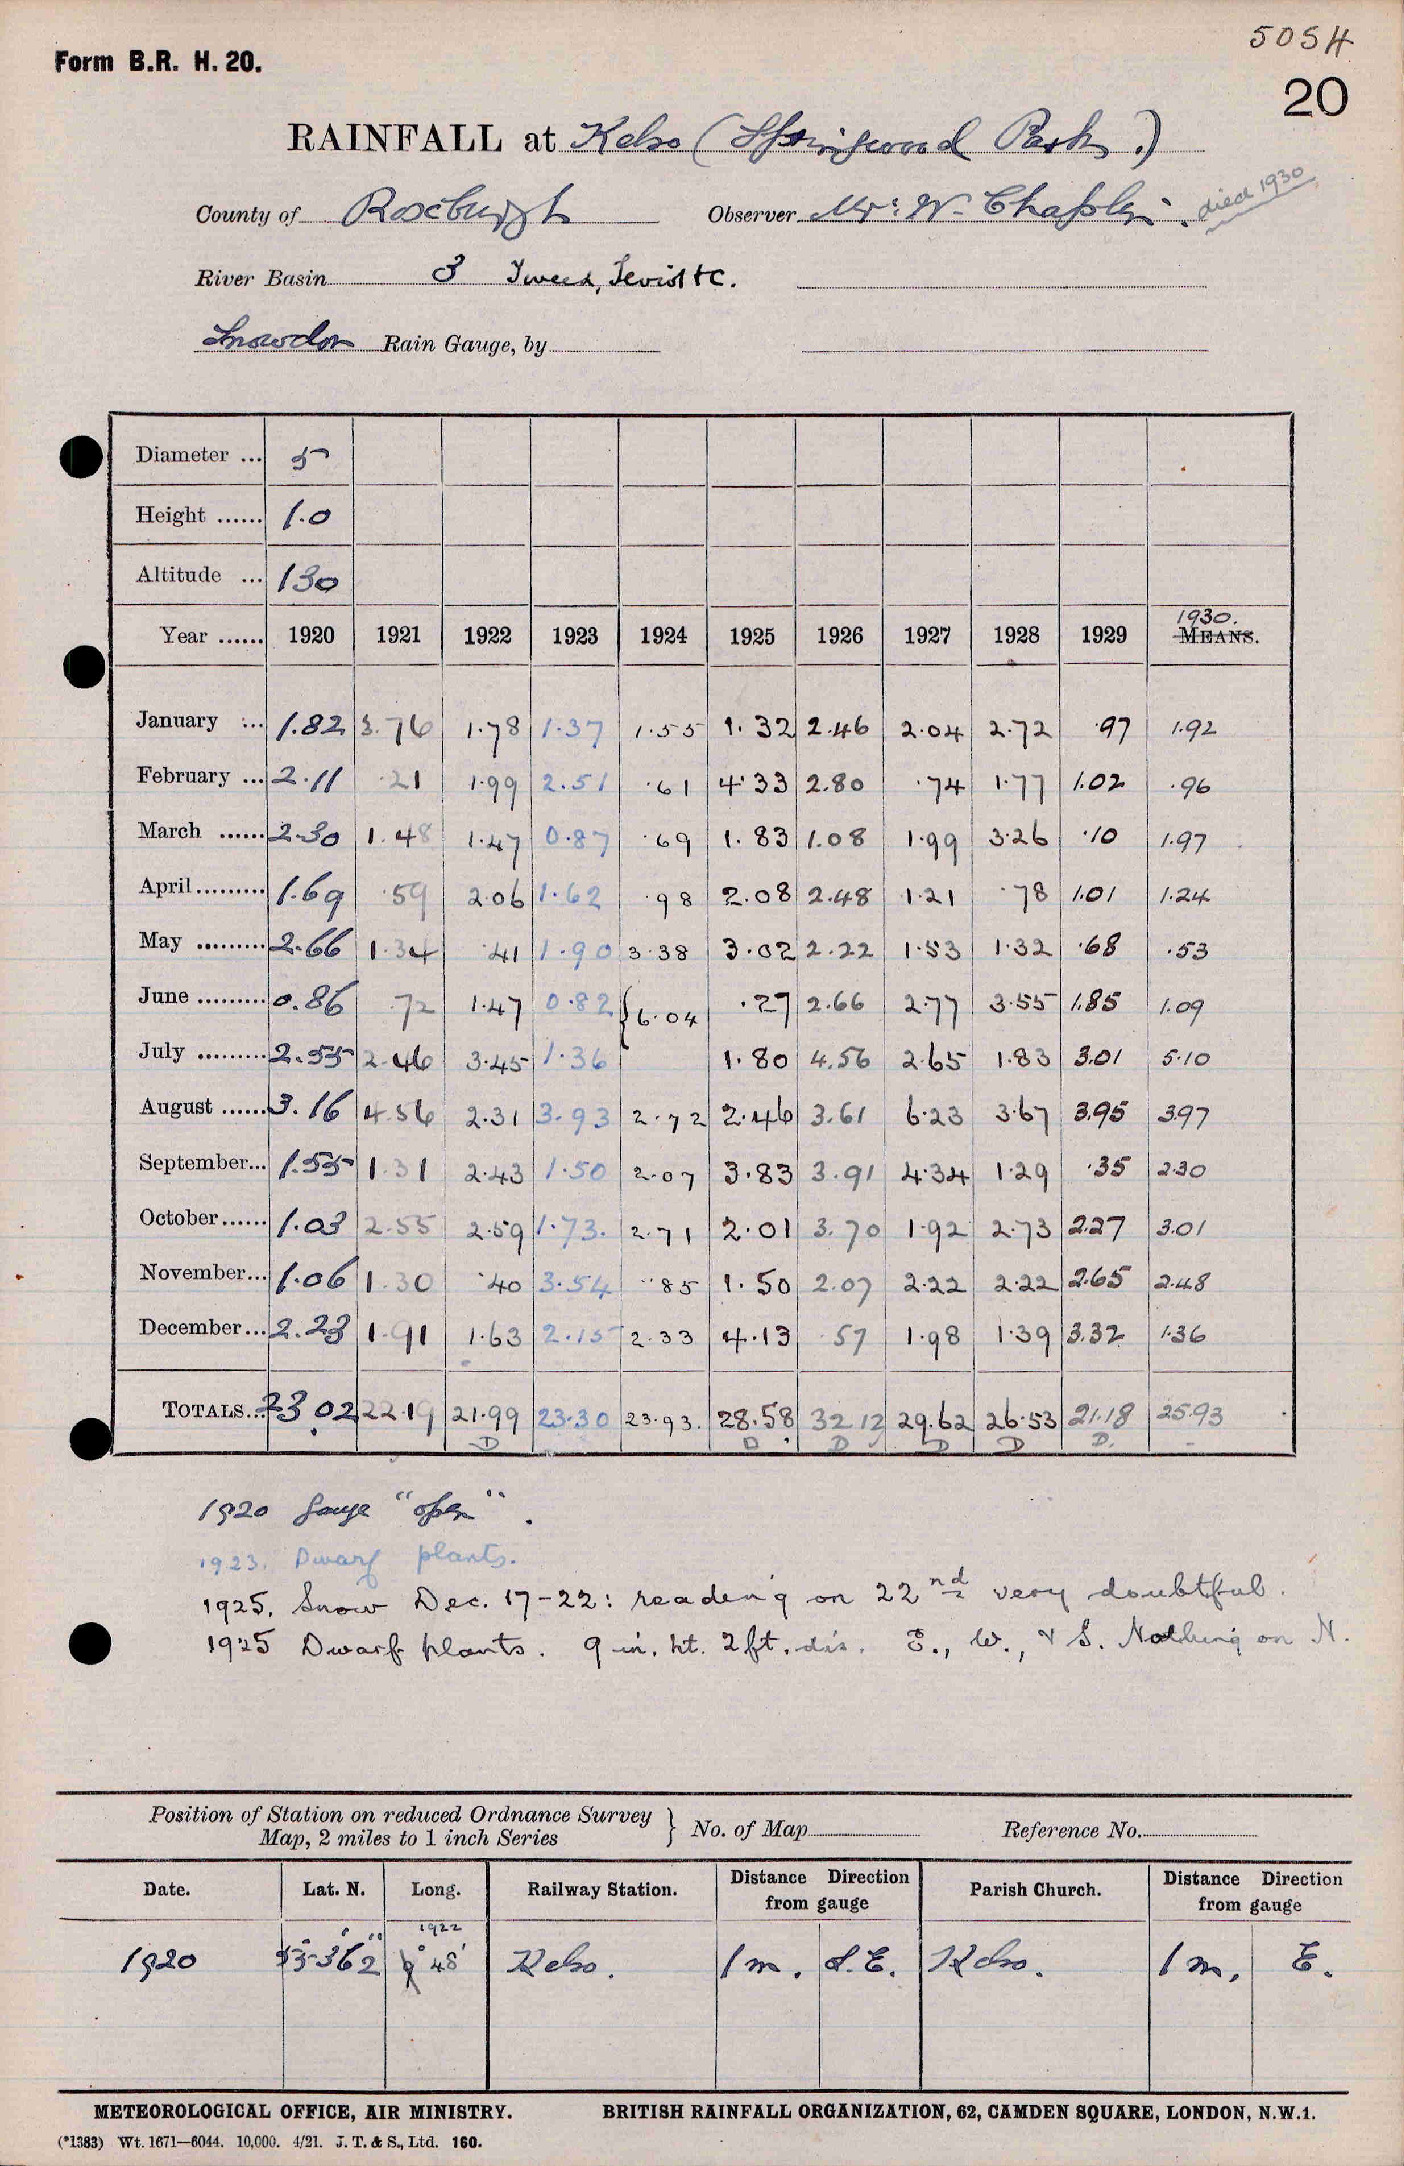 5054
Form B.R. H. 20.
20
RAINFALL at Kelso (Springwood Park.)
died 1930
County of Roxburgh Observer Mr. W. Chaplin.
River Basin 3 Tweed, Teviot &c.
Snowdon Rain Gauge, by
Diameter ... 5
Height ...... 1.0
Altitude ... 130
1930.
Year ...... 1920 1921 1922 1923 1924 1925 1926 1927 1928 1929 MEANS.
January ... 1.82 3.76 1.78 1.37 1.55 1.32 2.46 2.04 2.72 .97 1.92
February ... 2.11 .21 1.99 2.51 .61 4.33 2.80 .74 1.77 1.02 .96
March ...... 2.30 1.48 1.47 0.87 .69 1.83 1.08 1.99 3.26 .10 1.97
April......... 1.69 .59 2.06 1.62 .98 2.08 2.48 1.21 .78 1.01 1.24
May ......... 2.66 1.34 .41 1.90 3.38 3.02 2.22 1.53 1.32 .68 .53
June ......... 0.86 .72 1.47 0.82 { 6.04 .27 2.66 2.77 3.55 1.85 1.09
July ......... 2.55 2.46 3.45 1.36 1.80 4.56 2.65 1.83 3.01 5.10
August ...... 3.16 4.56 2.31 3.93 2.72 2.46 3.61 6.23 3.67 3.95 3.97
September... 1.55 1.31 2.43 1.50 2.07 3.83 3.91 4.34 1.29 .35 2.30
October...... 1.03 2.55 2.59 1.73. 2.71 2.01 3.70 1.92 2.73 2.27 3.01
November... 1.06 1.30 .40 3.54 .85 1.50 2.07 2.22 2.22 2.65 2.48
December... 2.23 1.91 1.63 2.15 2.33 4.13 .57 1.98 1.39 3.32 1.36
TOTALS... 23.02 22.19 21.99 23.30 23.93. 28.58 32.12 29.62 26.53 21.18 25.93
D D D D D D.
1920 Gauge "open".
1923. Dwarf plants.
1925. Snow Dec. 17-22: reading on 22nd very doubtful.
1925 Dwarf plants. 9 in. ht. 2 ft. dis. E., W., & S. Nothing on N.
Position of Station on reduced Ordnance Survey } No. of Map Reference No.
Map, 2 miles to 1 inch Series
Date. Lat. N. Long. Railway Station. Distance Direction from gauge Parish Church. Distance Direction from gauge
1922
1920 55° 36' 2" 48' Kelso. 1 m. S.E. Kelso. 1 m. E.
METEOROLOGICAL OFFICE, AIR MINISTRY. BRITISH RAINFALL ORGANIZATION, 62, CAMDEN SQUARE, LONDON, N.W.1.
(*1383) Wt. 1671—6044. 10,000. 4/21. J. T. & S., Ltd. 160.